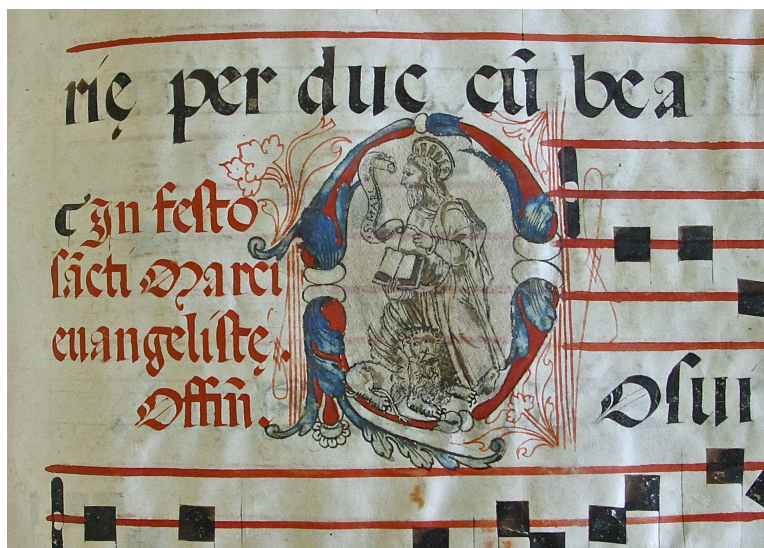 rię per duc cū bea
In festo
sācti Marci
euangelistę.
Offiñ.
S·MARC
Posui